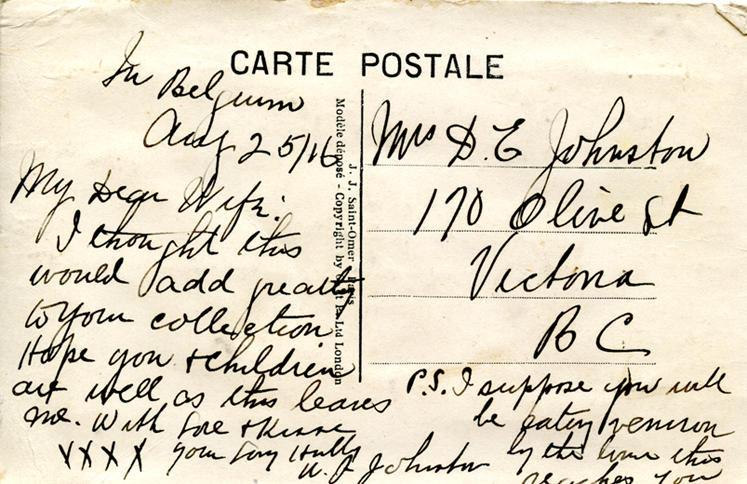 CARTE POSTALE
In Belgium
Aug 25/16
My Dear Wife:
I thought this
would add greatly
to your collection
Hope you & children
are well as this leaves
me. With Love & Kisses
XXXX your Lovg Hubby
Johnston
J. J. Saint-Omer Paris
Modèle déposé - Copyright by Ltd London
Mrs D. E Johnston
170 Olive St
Victoria
B C
P.S. I suppose you will
be eating venison
by the time this
reaches you